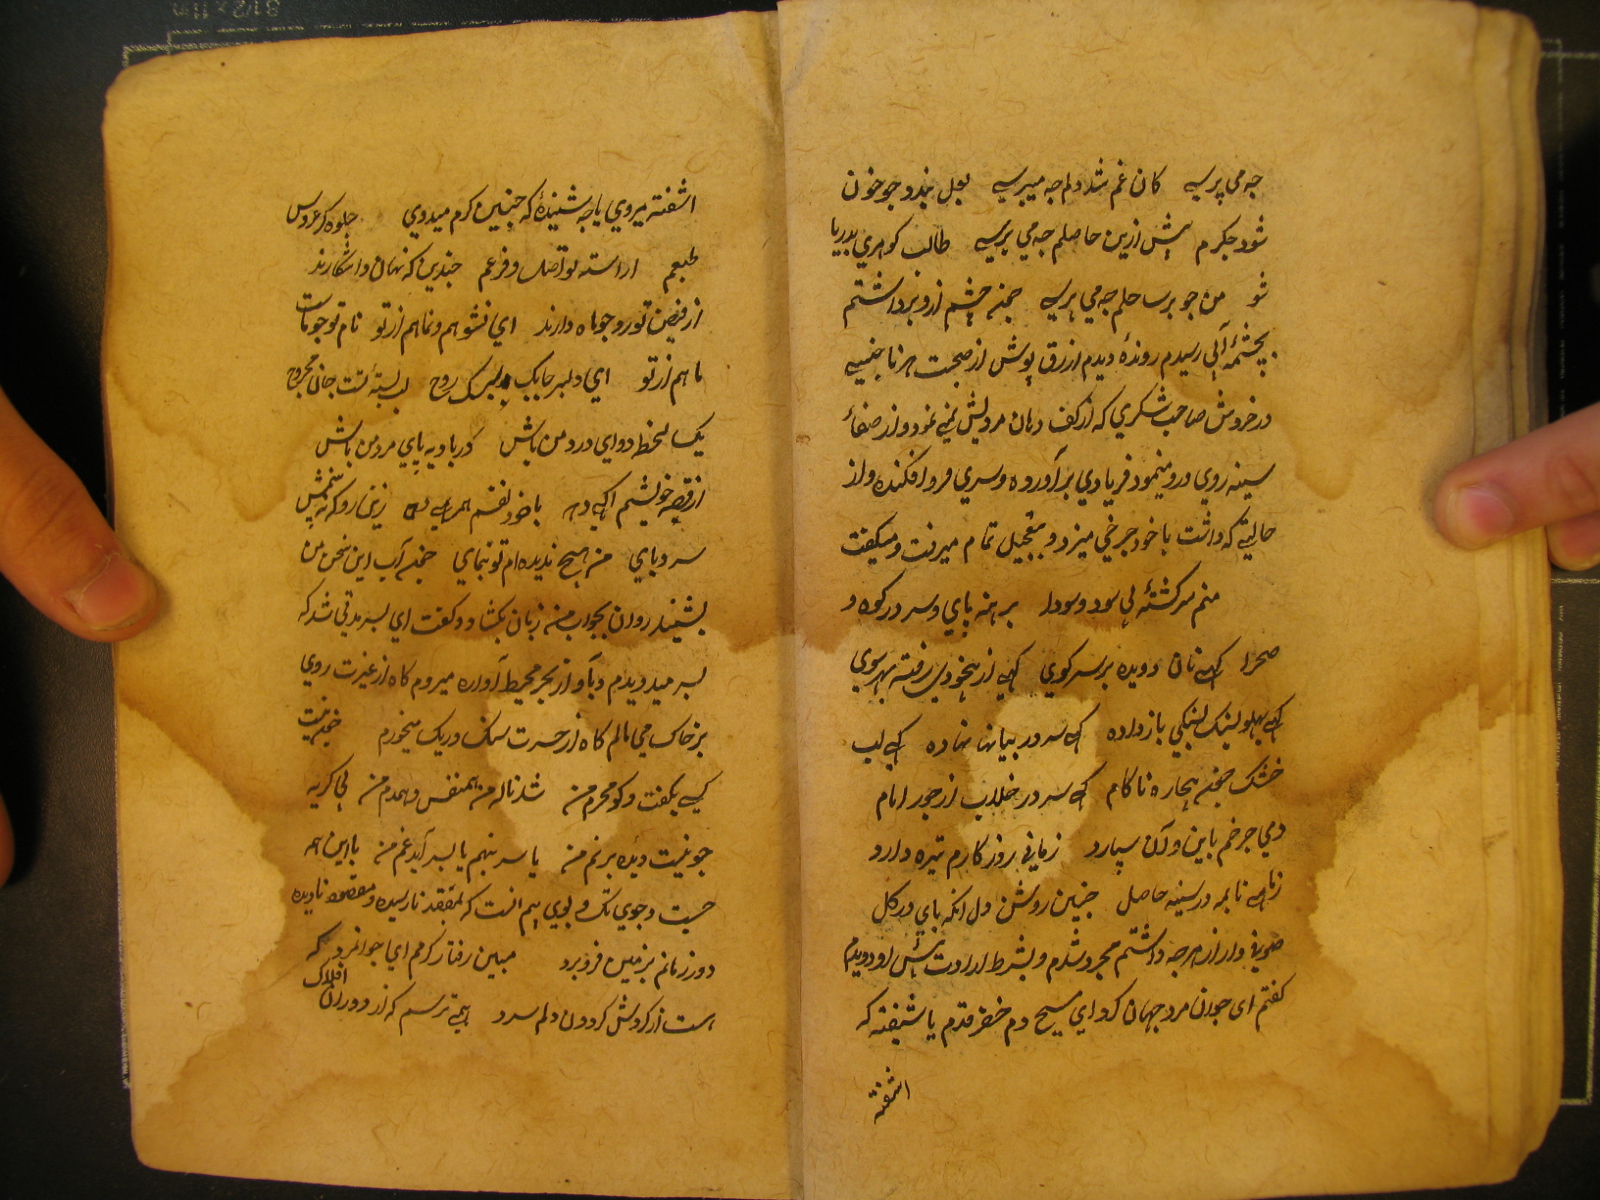 چه می پرسی کان غم شد دلم چه میپرسی بعل بندد چو خون
شود جکرم پیش ازین حاصلم چه می پرسی طالب کوهری بدریا
شو من چو بر ساحلم چه می پرسی چون چشم ازو برداشتم
بچشمهٔ آبی رسیدم روندهٔ دیدم ازرق پوش از صحبت هر ناجنسی
در خروش صاحب شکری که از کف دهان مرویش می نمود و از صفاء
سینه روی درو مینمود فریادی برآورده و سری فرو افکنده و از
حالتی که داشت با خود چرخی میزد و بتعجیل تمام میرفت و میکفت
منم سرکشتهٔ بی سود و سودا برهنه پای و سر در کوه و
صحرا کهی نان دویده بر سر کوی کهی از بیخودی رفته بهر سوی
کهی پهلو بسنک بازداده کهی سر در بیابانها نهاده کهی لب
خشک چون بیچاره ناکام کهی سر در خلاب از جور ایام
دمی چرخم باین و آن سپارد زمانی روزکارم تیره دارد
زهی نابمه در سینه حاصل چنین روشن دل انکه پای در کل
صوفی وار از هرچه داشتم مجرد شدم و بشرط ارادت پیش او دویدم
کفتم ای جوان مرد جهان کرد ای مسیح دم خضر قدم یا شیفته که
اشفته
اشفته میروی یا چه شنیدهٔ که چنین کرم میدوی جلوه کر عروس
طبعم اراسته تو اصل و فرعم چندین که نهان و اشکارند
از فیض تو روچو ماه دارند ای نشو هم و نما هم از تو نام تو چو ماست
ما هم از تو ای دلبر چابک سبک روح بسته تست جان مجروح
یک لحظ دوای درد من باش در بادیه پای مرد من باش
از قصه خویشم اکهی ده با خود نفسم همرهی ده زین رو که نه پیشش
سر و پای من هیچ ندیده ام تو بنمای چون آب این سخن من
بشنید روان بجواب من زبان بکشاد و کفت ای پسر مدتی شد که
بسر میدویدم و از بحر محیط آواره میروم کاه از غیرت روی
بر خاک می مالم کاه از حسرت سنک و ریک میخورم خبر نیست
کسی یکفت و کو محرم من شد ناله من همنفس و همدم من بی کریه
چو نیست دیده بر نم من یا سر بنهم یا بسر آید غم من با این همه
جست و جوی تک و پوی بیم انست که بمقصد نارسیده و مقصود نادیده
دور زمانم بزمین فرو برد مبین رفتار کرمم ای جوانمرد که
هست از کردش کردون دلم سرد همی ترسم که از دوران افلاک